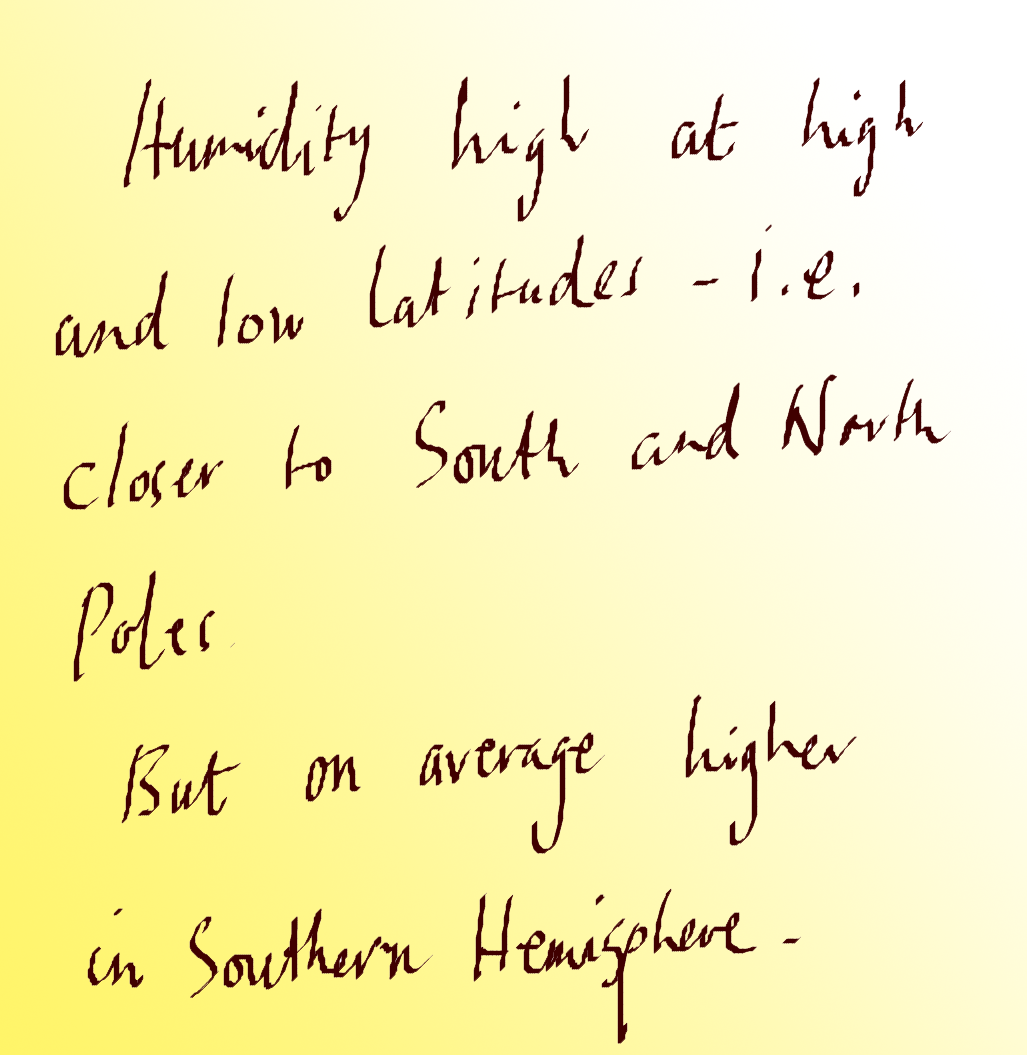 Humidity high at high
and low latitudes - i.e.
closer to South and North
Poles.
But on average higher
in Southern Hemisphere -